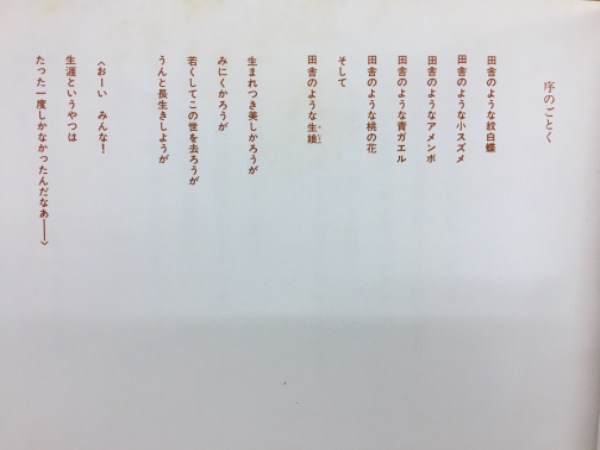 序のごとく
田舎のような紋白蝶
田舎のような小スズメ
田舎のようなアメンボ
田舎のような青ガエル
田舎のような桃の花
そして
田舎のような生娘
生まれつき美しかろうが
みにくかろうが
若くしてこの世を去ろうが
うんと長生きしようが
〈おーい　みんな！
生涯というやつは
たった一度しかなかったんだなあ――〉